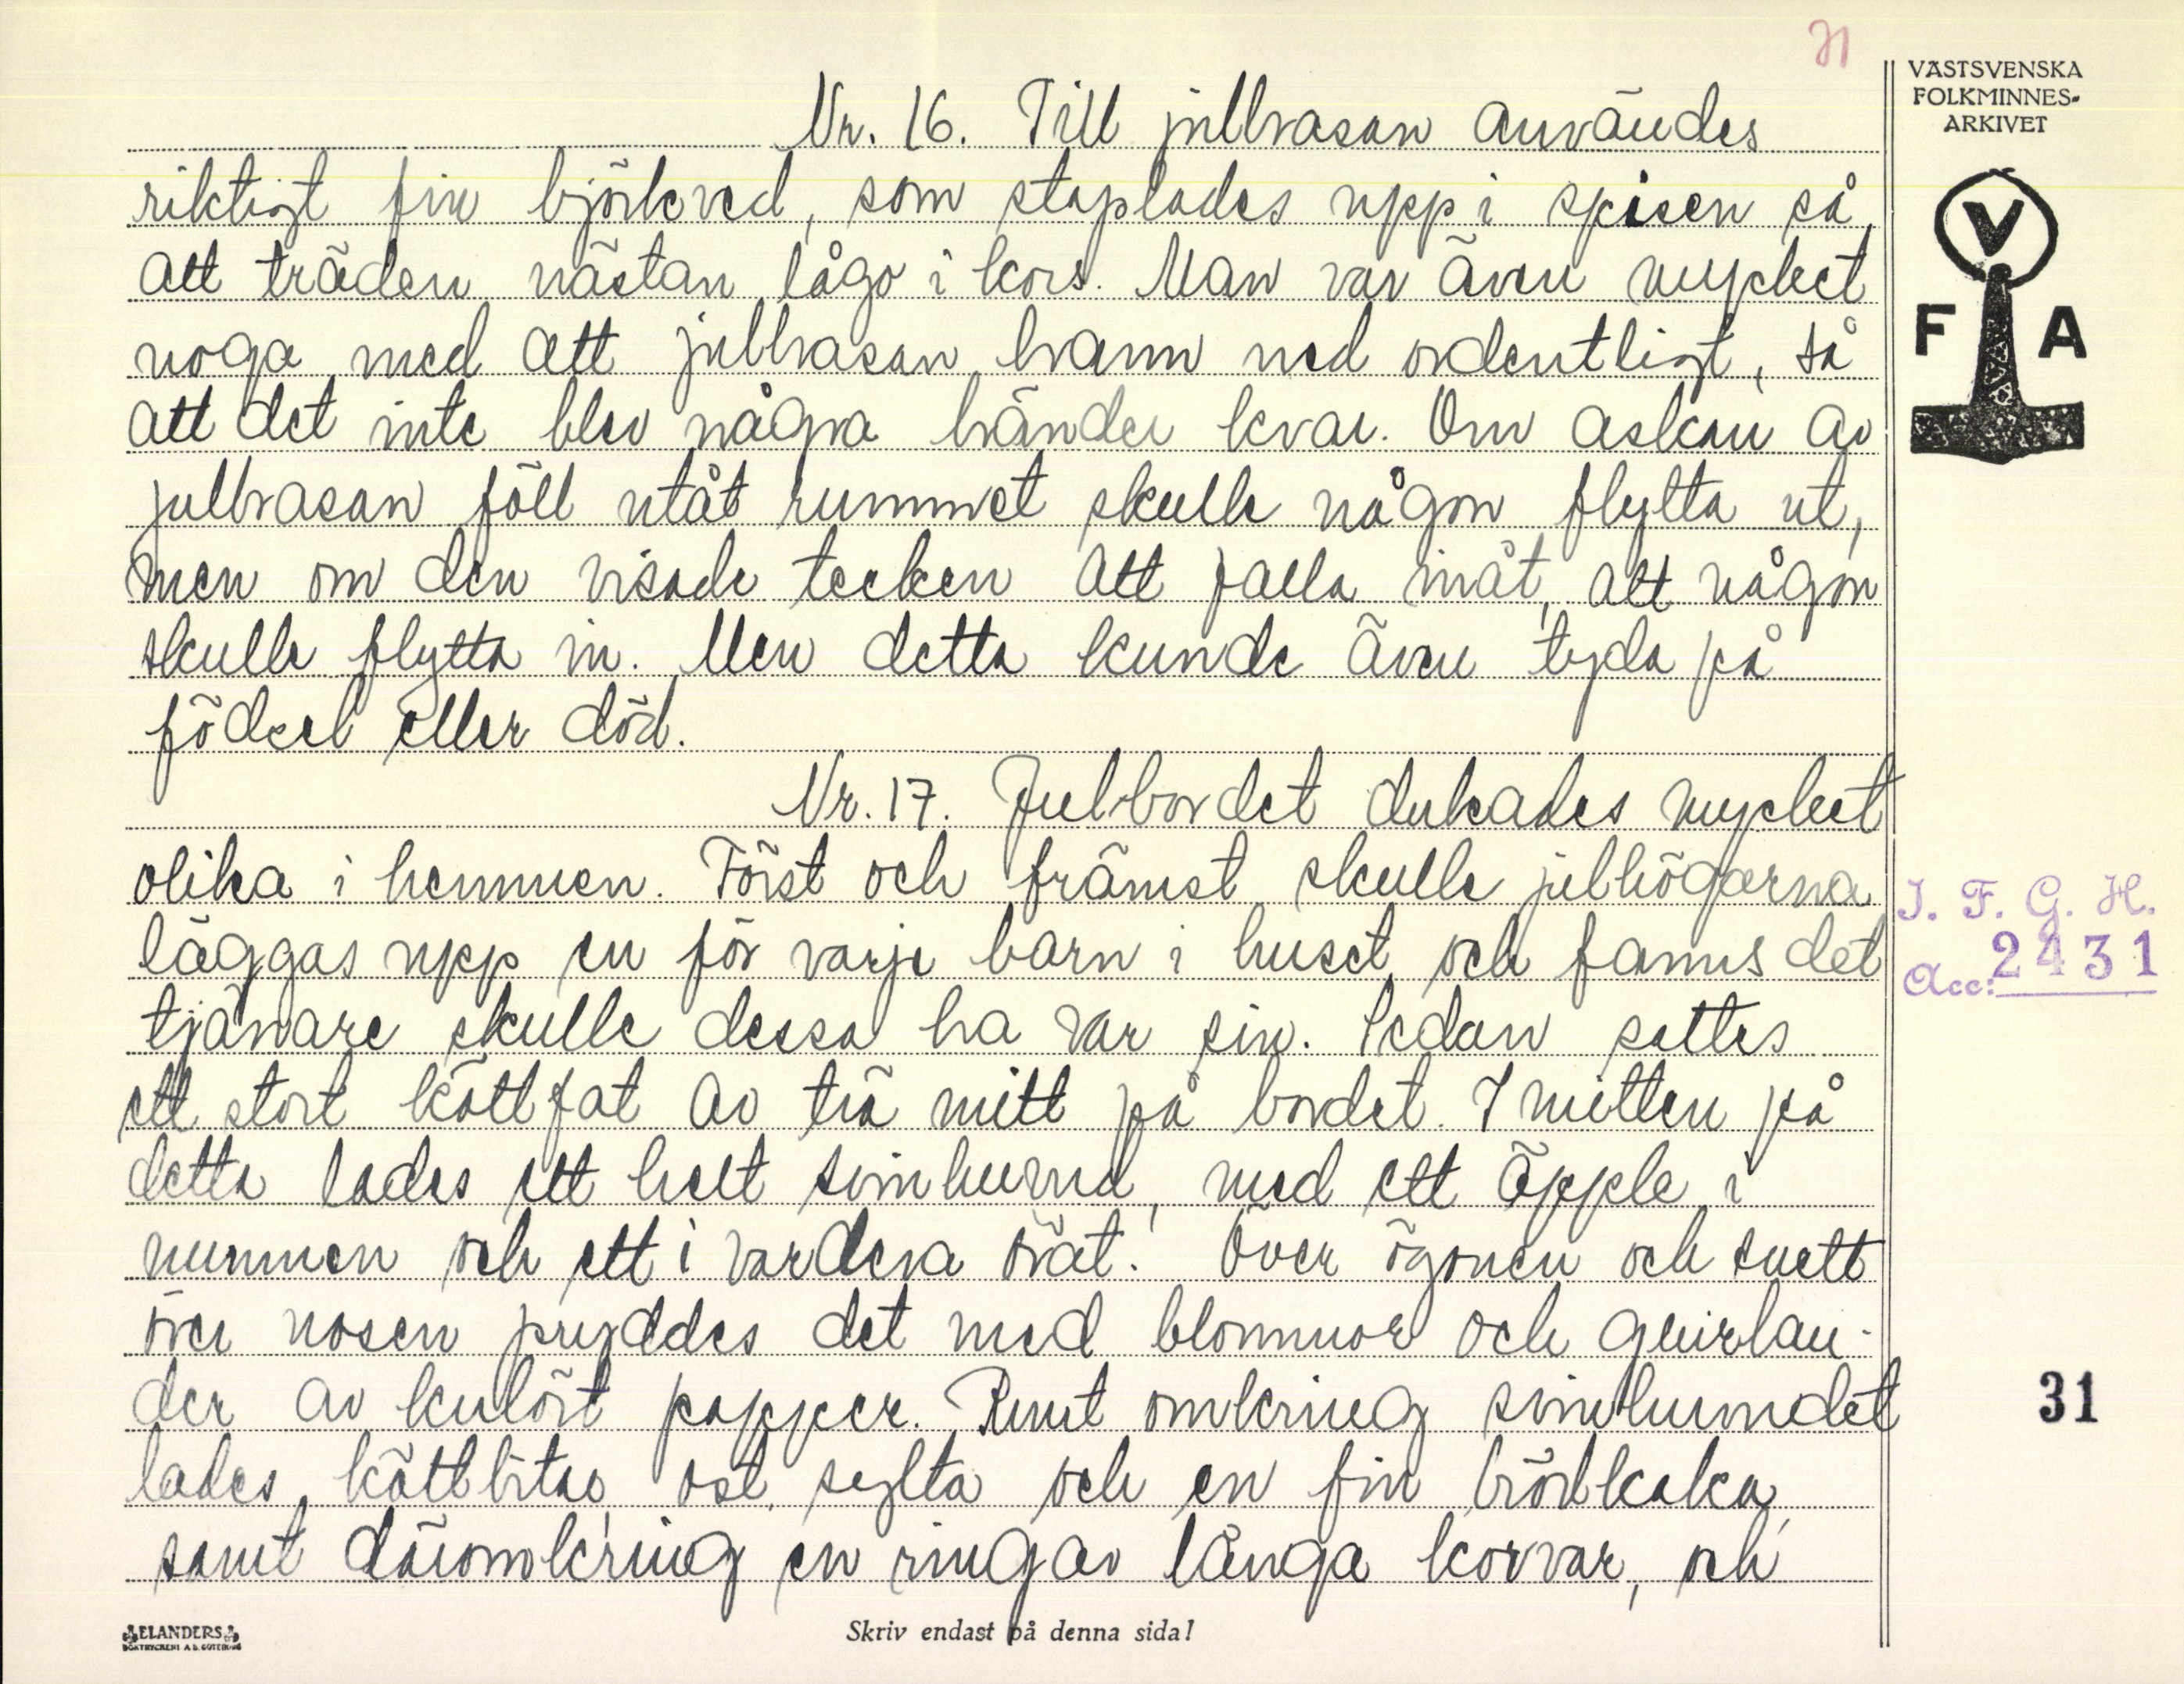 31
VÄSTSVENSKA
FOLKMINNES-
ARKIVET
V
F A
Nr. 16. Till julbrasan användes
riktigt fin björkved, som staplades upp i spisen så,
att träden nästan lågo i kors. Man var även mycket
noga med att julbrasan brann ned ordentligt, så
att det inte blev några bränder kvar. Om askan av
julbrasan föll utåt rummet skulle någon flytta ut,
men om den visade tecken att falla inåt, att någon
skulle flytta in. Men detta kunde även tyda på
födsel eller död.
Nr. 17. Julbordet dukades mycket
olika i hemmen. Först och främst skulle julhögarna
läggas upp en för varje barn i huset, och fanns det
tjänare skulle dessa ha var sin. Sedan sattes
ett stort köttfat av trä mitt på bordet. I mitten på
detta lades ett helt svinhuvud, med ett äpple i
munnen och ett i vardera örat! Över ögonen och snett
över nosen pryddes det med blommor och guirlan-
der av kulört papper. Runt omkring svinhuvudet
lades, köttbitar, ost, sylta och en fin brödkaka,
samt däromkring en ring av långa korvar, och
I. F. G. H.
Acc: 2431
31
ELANDERS
BOKTRYCKERI A.B. GÖTEBORG
Skriv endast på denna sida!